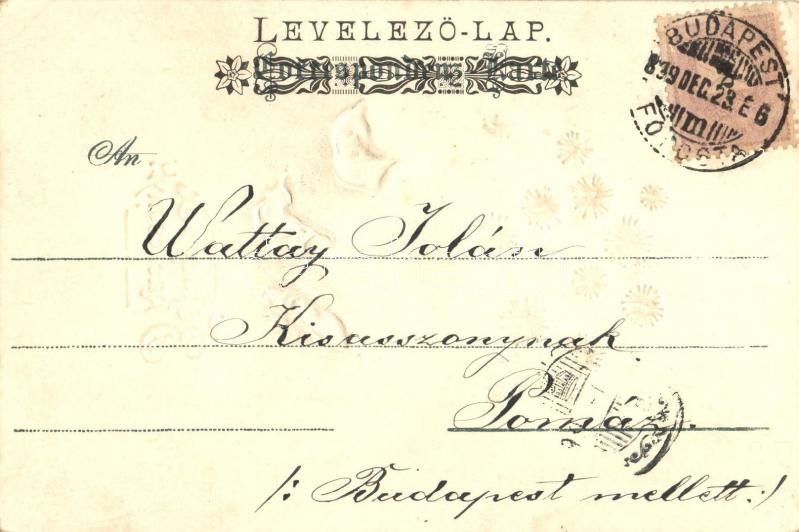 LEVELEZŐ-LAP.
Correspondenz-Karte
BUDAPEST
899 DEC. 23. É 6
FŐPOSTA
An
Wattay Jolán
Kisasszonynak
Pomáz.
/: Budapest mellett :/